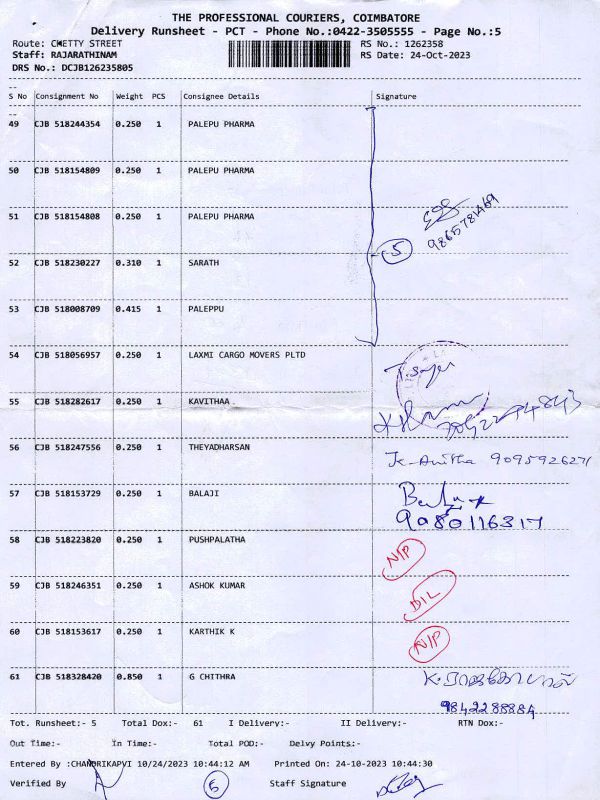 THE PROFESSIONAL COURIERS, COIMBATORE
Delivery Runsheet - PCT - Phone No.:0422-3505555 - Page No.:5
Route: CHETTY STREET
RS No.: 1262358
Staff: RAJARATHINAM
RS Date: 24-Oct-2023
DRS No.: DCJB126235805
S No Consignment No Weight PCS Consignee Details Signature
49 CJB 518244354 0.250 1 PALEPU PHARMA
50 CJB 518154809 0.250 1 PALEPU PHARMA
51 CJB 518154808 0.250 1 PALEPU PHARMA
9865781469
5
52 CJB 518230227 0.310 1 SARATH
53 CJB 518008709 0.415 1 PALEPPU
54 CJB 518056957 0.250 1 LAXMI CARGO MOVERS PLTD
55 CJB 518282617 0.250 1 KAVITHAA .
56 CJB 518247556 1 0.250 THEYADHARSAN K-Anitha 9095926271
57 CJB 518153729 0.250 1 BALAJI
9080116317
58 CJB 518223820 0.250 1 PUSHPALATHA N/P
59 CJB 518246351 0.250 1 ASHOK KUMAR D/L
60 CJB 518153617 0.250 1 KARTHIK K N/P
61 CJB 518328420 0.850 1 G CHITHRA
9842288884
Tot. Runsheet:- 5 Total Dox:- 61 I Delivery:- II Delivery:- RTN Dox:-
Out Time:- In Time:- Total POD:- Delvy Points:-
Entered By :CHANDRIKAPVI 10/24/2023 10:44:12 AM Printed On: 24-10-2023 10:44:30
Verified By 6 Staff Signature